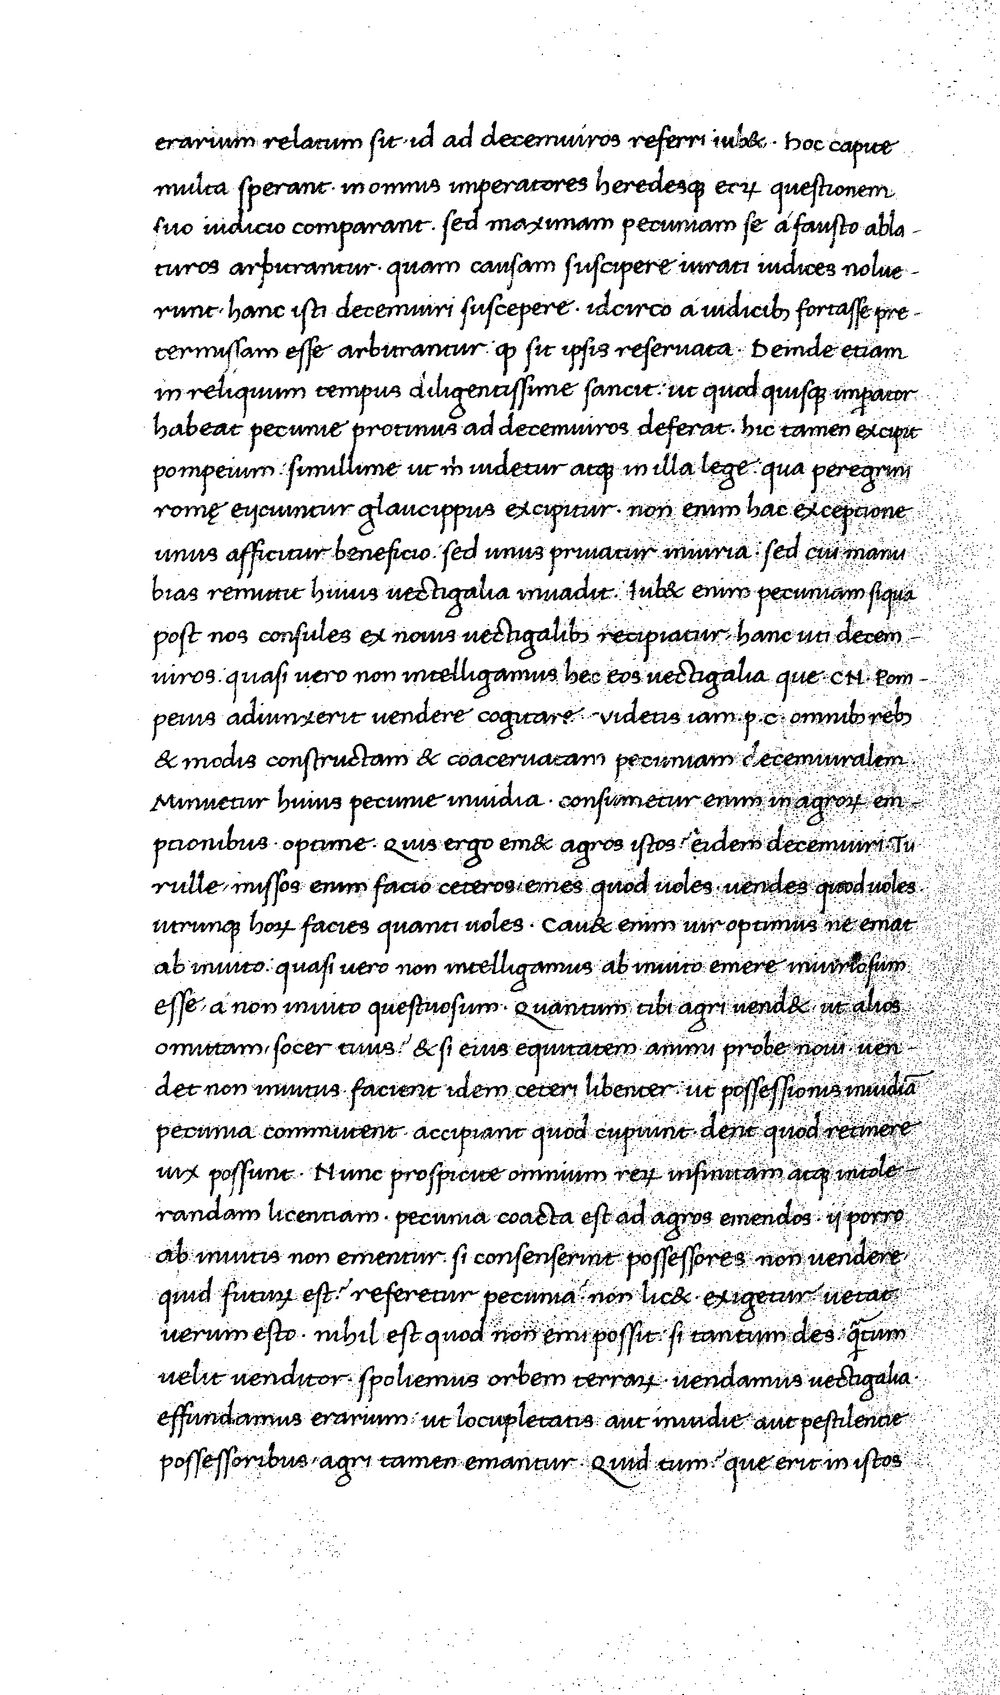 erarium relatum sit · id ad decemuiros referri iub& · hoc capite
multa sperant · in omnis imperatores heredesq; eoꝝ questionem
suo iudicio comparant · sed maximam pecuniam se á fausto abla -
turos arbitrantur · quam causam suscipere iurati iudices nolue -
runt · hanc isti decemuiri suscepere · idcirco á iudicibꝫ fortasse pre -
termissam esse arbitrantur · ꝙ sit ipsis reseruata · Deinde etiam
in reliquum tempus diligentissime sancit · ut quod quisq; imꝑator
habeat pecunie protinus ad decemuiros deferat · hic tamen excipit
pompeium · simillime ut m̊ uidetur atq; in illa lege · qua peregrini
romę eijciuntur glaucippus excipitur · non enim hac exceptione
unus afficitur beneficio · sed unus priuatur iniuria · sed cui manu
bias remittit huius uectigalia inuadit · Iub& enim pecuniam siqua
post nos consules ex nouis uectigalibꝫ recipiatur · hanc uti decem -
uiros · quasi uero non intelligamus hec eos uectigalia que · CN · Pom -
peius adiunxerit uendere cogitare · Videtis iam · p · c · omnibꝫ rebꝫ
& modis constructam & coaceruatam pecuniam decemuiralem ·
Minuetur huius pecunie inuidia · consumetur enim in agroꝝ em -
ptionibus · optime · Quis ergo em& agros istos? eidem decemuiri · Tu
rulle · missos enim facio ceteros · emes quod uoles · uendes quod uoles ·
utrunq; hoꝝ facies quanti uoles · Cau& enim uir optimus ne emat
ab inuito · quasi uero non intelligamus ab inuito emere iniuriosum
esse · á non inuito questuosum · Quantum tibi agri uend& · ut alios
omittam · socer tuus? & si eius equitatem animi probe noui · uen -
det non inuitus · facient idem ceteri libenter · ut possessionis inuidiā
pecunia commutent · accipiant quod cupiunt · dent quod retinere
uix possunt · Nunc prospicite omnium reꝝ infinitam atq; intole -
randam licentiam · pecunia coacta est ad agros emendos · ij porro
ab inuitis non ementur · si consenserint possessores non uendere
quid futuꝝ est? referetur pecunia? non lic& · exigetur? uetat ·
uerum esto · nihil est quod non emi possit · si tantum des · q̄tum
uelit uenditor · spoliemus orbem terraꝝ · uendamus uectigalia ·
effundamus erarium · ut locupletatis aut inuidie aut pestilentie
possessoribus · agri tamen emantur · Quid tum? que erit in istos